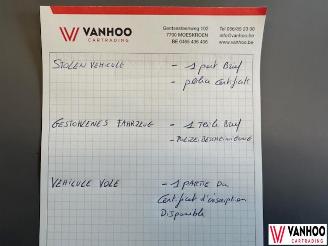 VANHOO
CARTRADING
Gentsesteenweg 100
7700 MOESKROEN
BE 0466 436 436
Tel 056/85 23 00
info@vanhoo.be
www.vanhoo.be
STOLEN VEHICULE - 1 part Brief
- police certificate
GESTOHLENES FAHRZEUG - 1 Teile Brief
- POLIZEIBESCHEINIGUNG
VEHICULE VOLE - 1 PARTIE DU
Certificat d'inscription
Disponible
VANHOO
CARTRADING